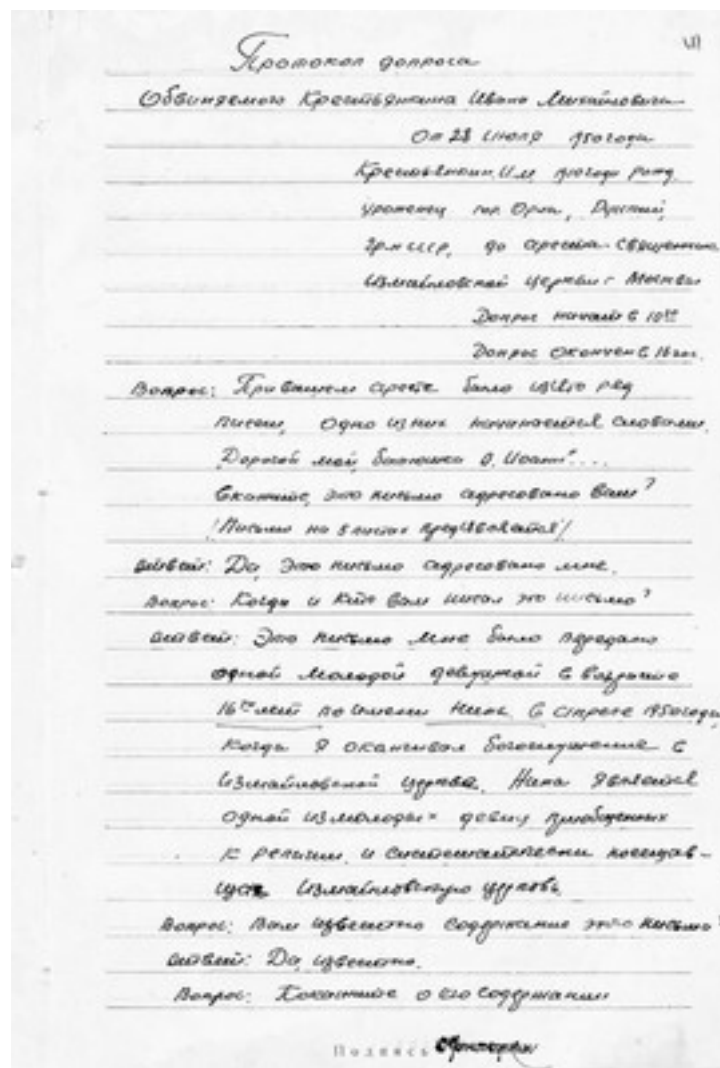 Протокол допроса
Обвиняемого Крестьянкина Ивана Михайловича
От 28 июля 1950 года
Крестьянкин И.М. 1910 года рожд.
уроженец гор. Орла, Русский,
гр-н СССР, до ареста священник
Измайловской церкви г. Москвы
Допрос начат в 10
Допрос окончен в 16 час.
Вопрос: При вашем аресте было изъято ряд
писем, одно из них начинается словами
"Дорогой мой батюшка О. Иоанн"...
Скажите, это письмо адресовано вам?
/Письмо на 5 листах предъявляется/
Ответ: Да, это письмо адресовано мне.
Вопрос: Когда и кто вам писал это письмо?
Ответ: Это письмо мне было передано
одной молодой девушкой в возрасте
16 лет по имени Нина в апреле 1950 года,
когда я оканчивал богослужение в
Измайловской церкви. Нина является
одной из молодых девиц приобщенных
к религии и систематически посещав-
Измайловскую церковь.
Вопрос: Вам известно содержание этого письма?
Ответ: Да, известно.
Вопрос: Покажите о его содержании
Подпись